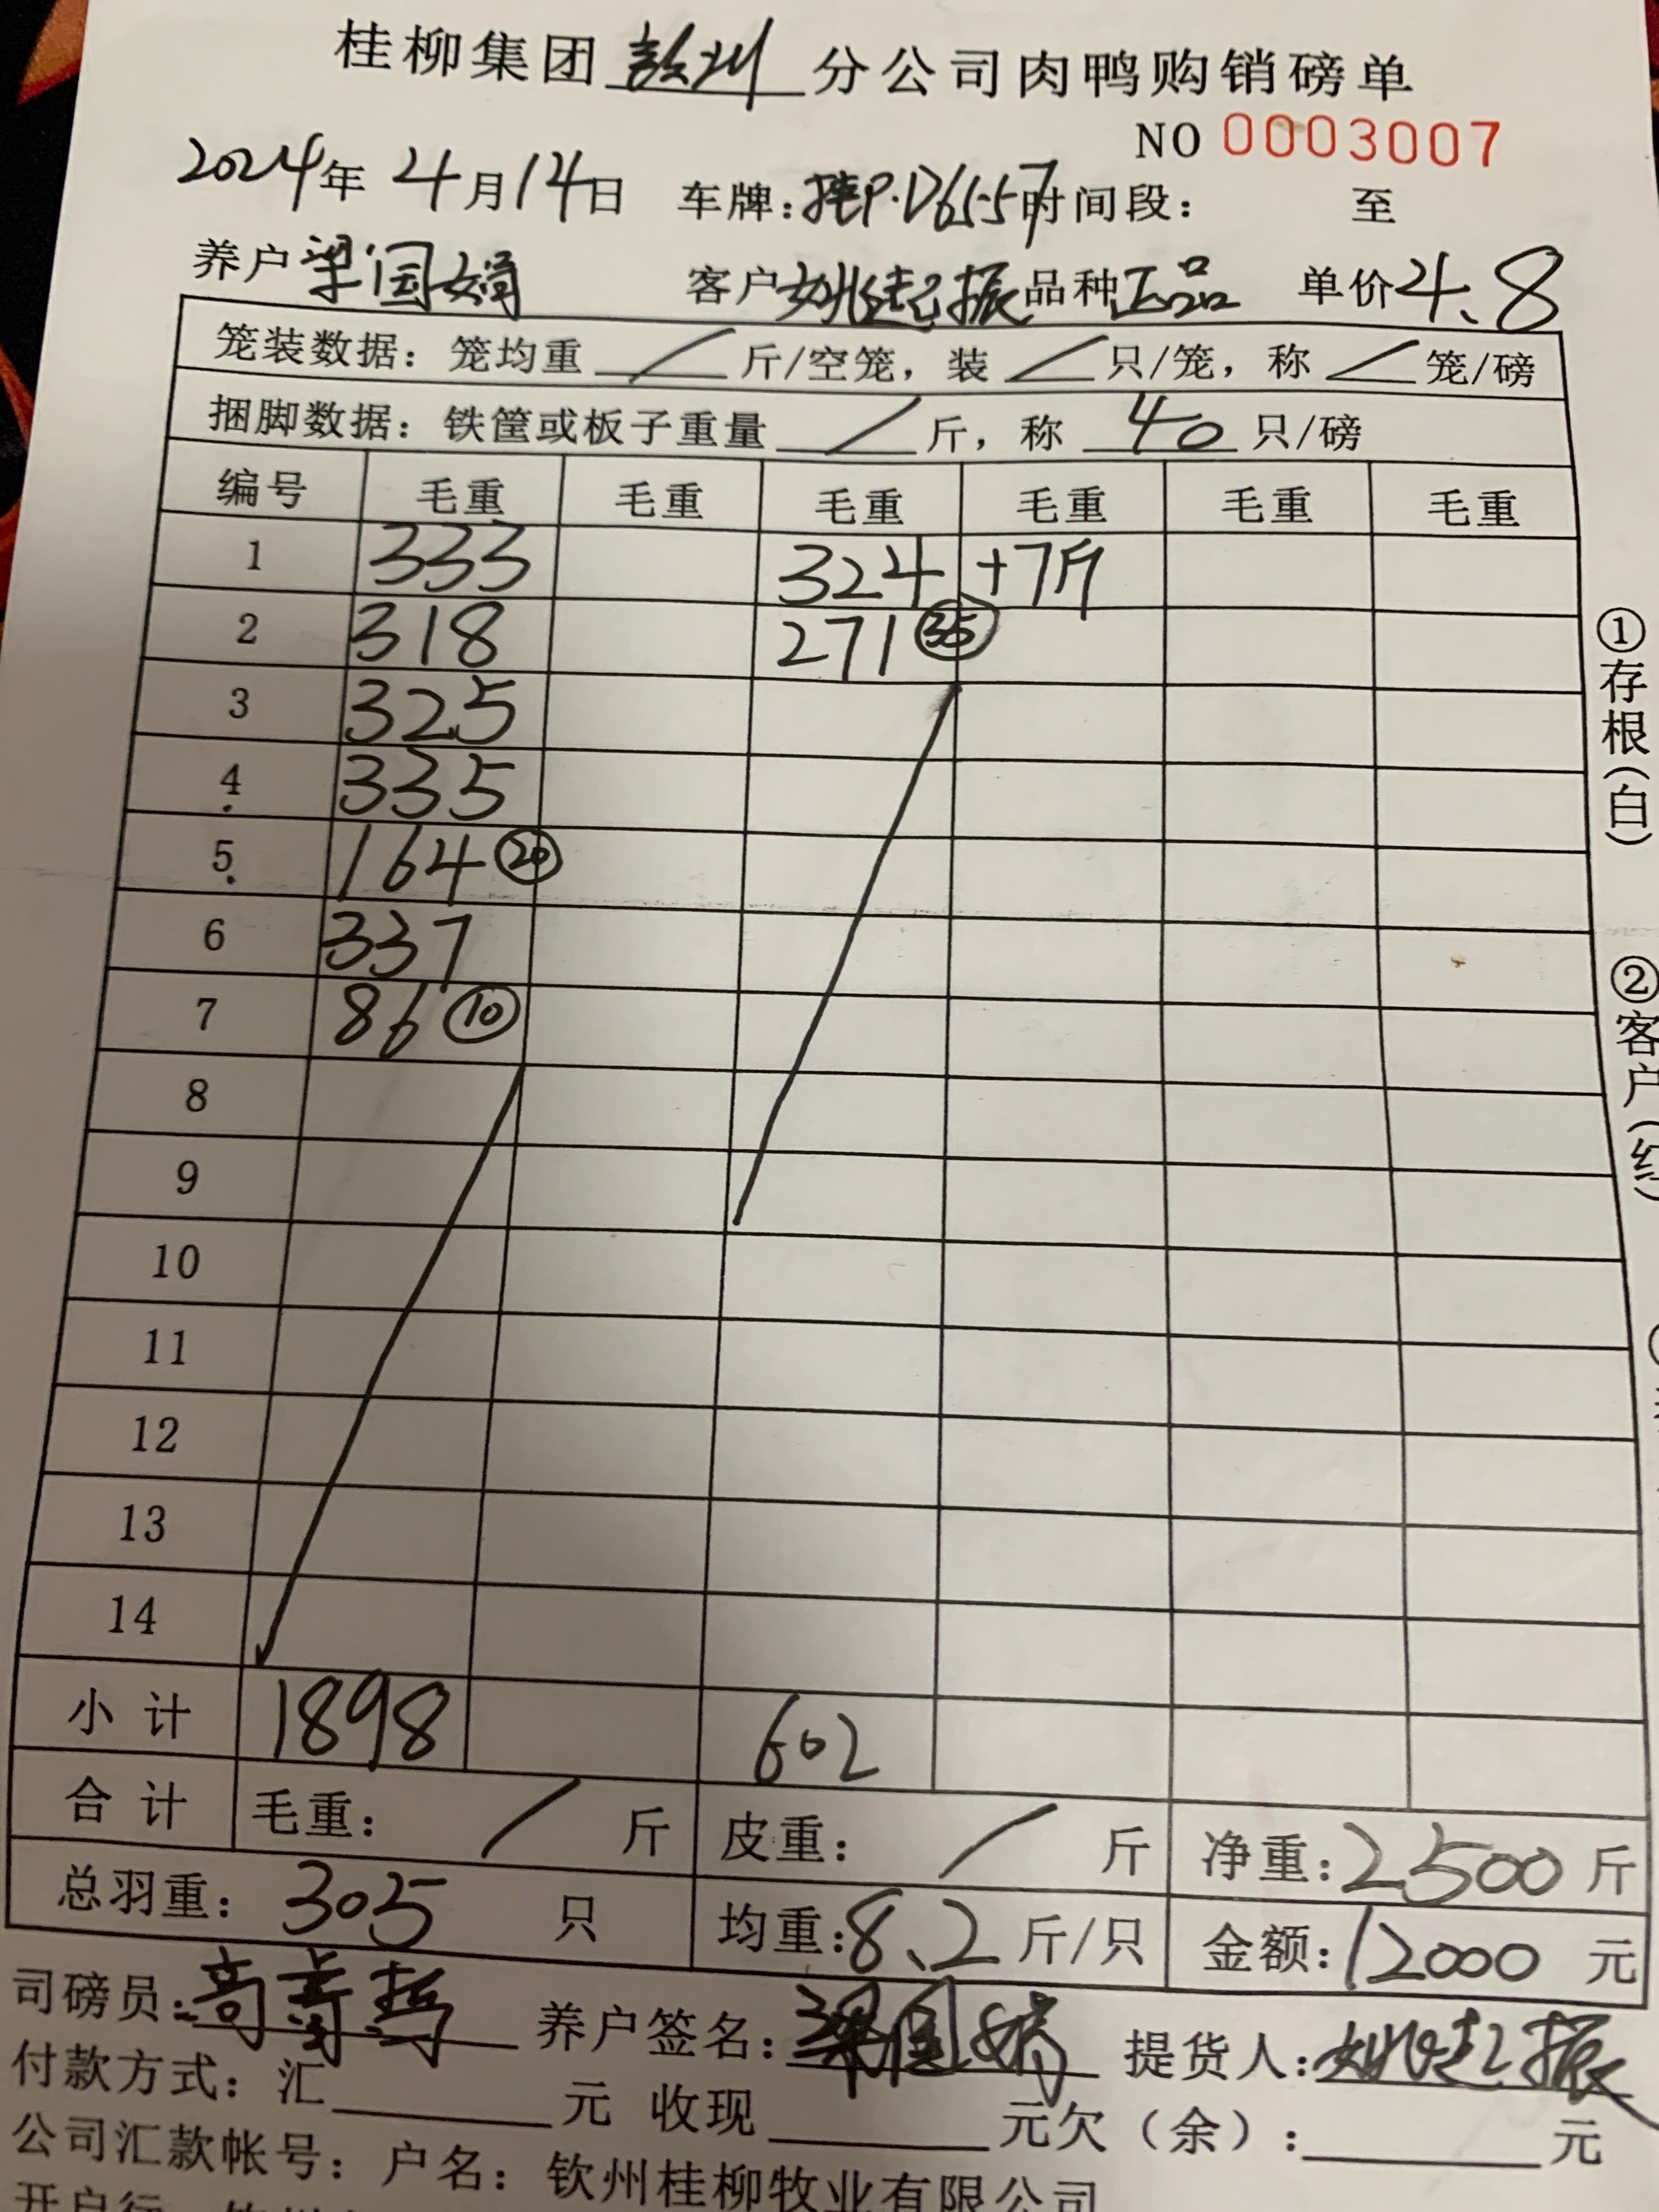 桂柳集团钦州分公司肉鸭购销磅单
NO 0003007
2024年 4月14日 车牌:桂P·D6557时间段: 至
养户梁国娟 客户姚起振品种正品 单价4、8
笼装数据:笼均重 / 斤/空笼,装 / 只/笼,称 / 笼/磅
捆脚数据:铁筐或板子重量 / 斤,称 40 只/磅
编号 毛重 毛重 毛重 毛重 毛重 毛重
1 333 324 +7斤
2 318 271 35
3 325
4 335
5 164 20
6 337
7 86 10
8
9
10
11
12
13
14
小计 1898 602
合计 毛重: / 斤 皮重: / 斤 净重:2500斤
总羽重:305 只 均重:8、2斤/只 金额:12000 元
司磅员: 养户签名:梁国娟 提货人:姚起振
付款方式:汇 元 收现 元欠(余): 元
公司汇款帐号:户名:钦州桂柳牧业有限公司
①存根(白)
②客户(红)